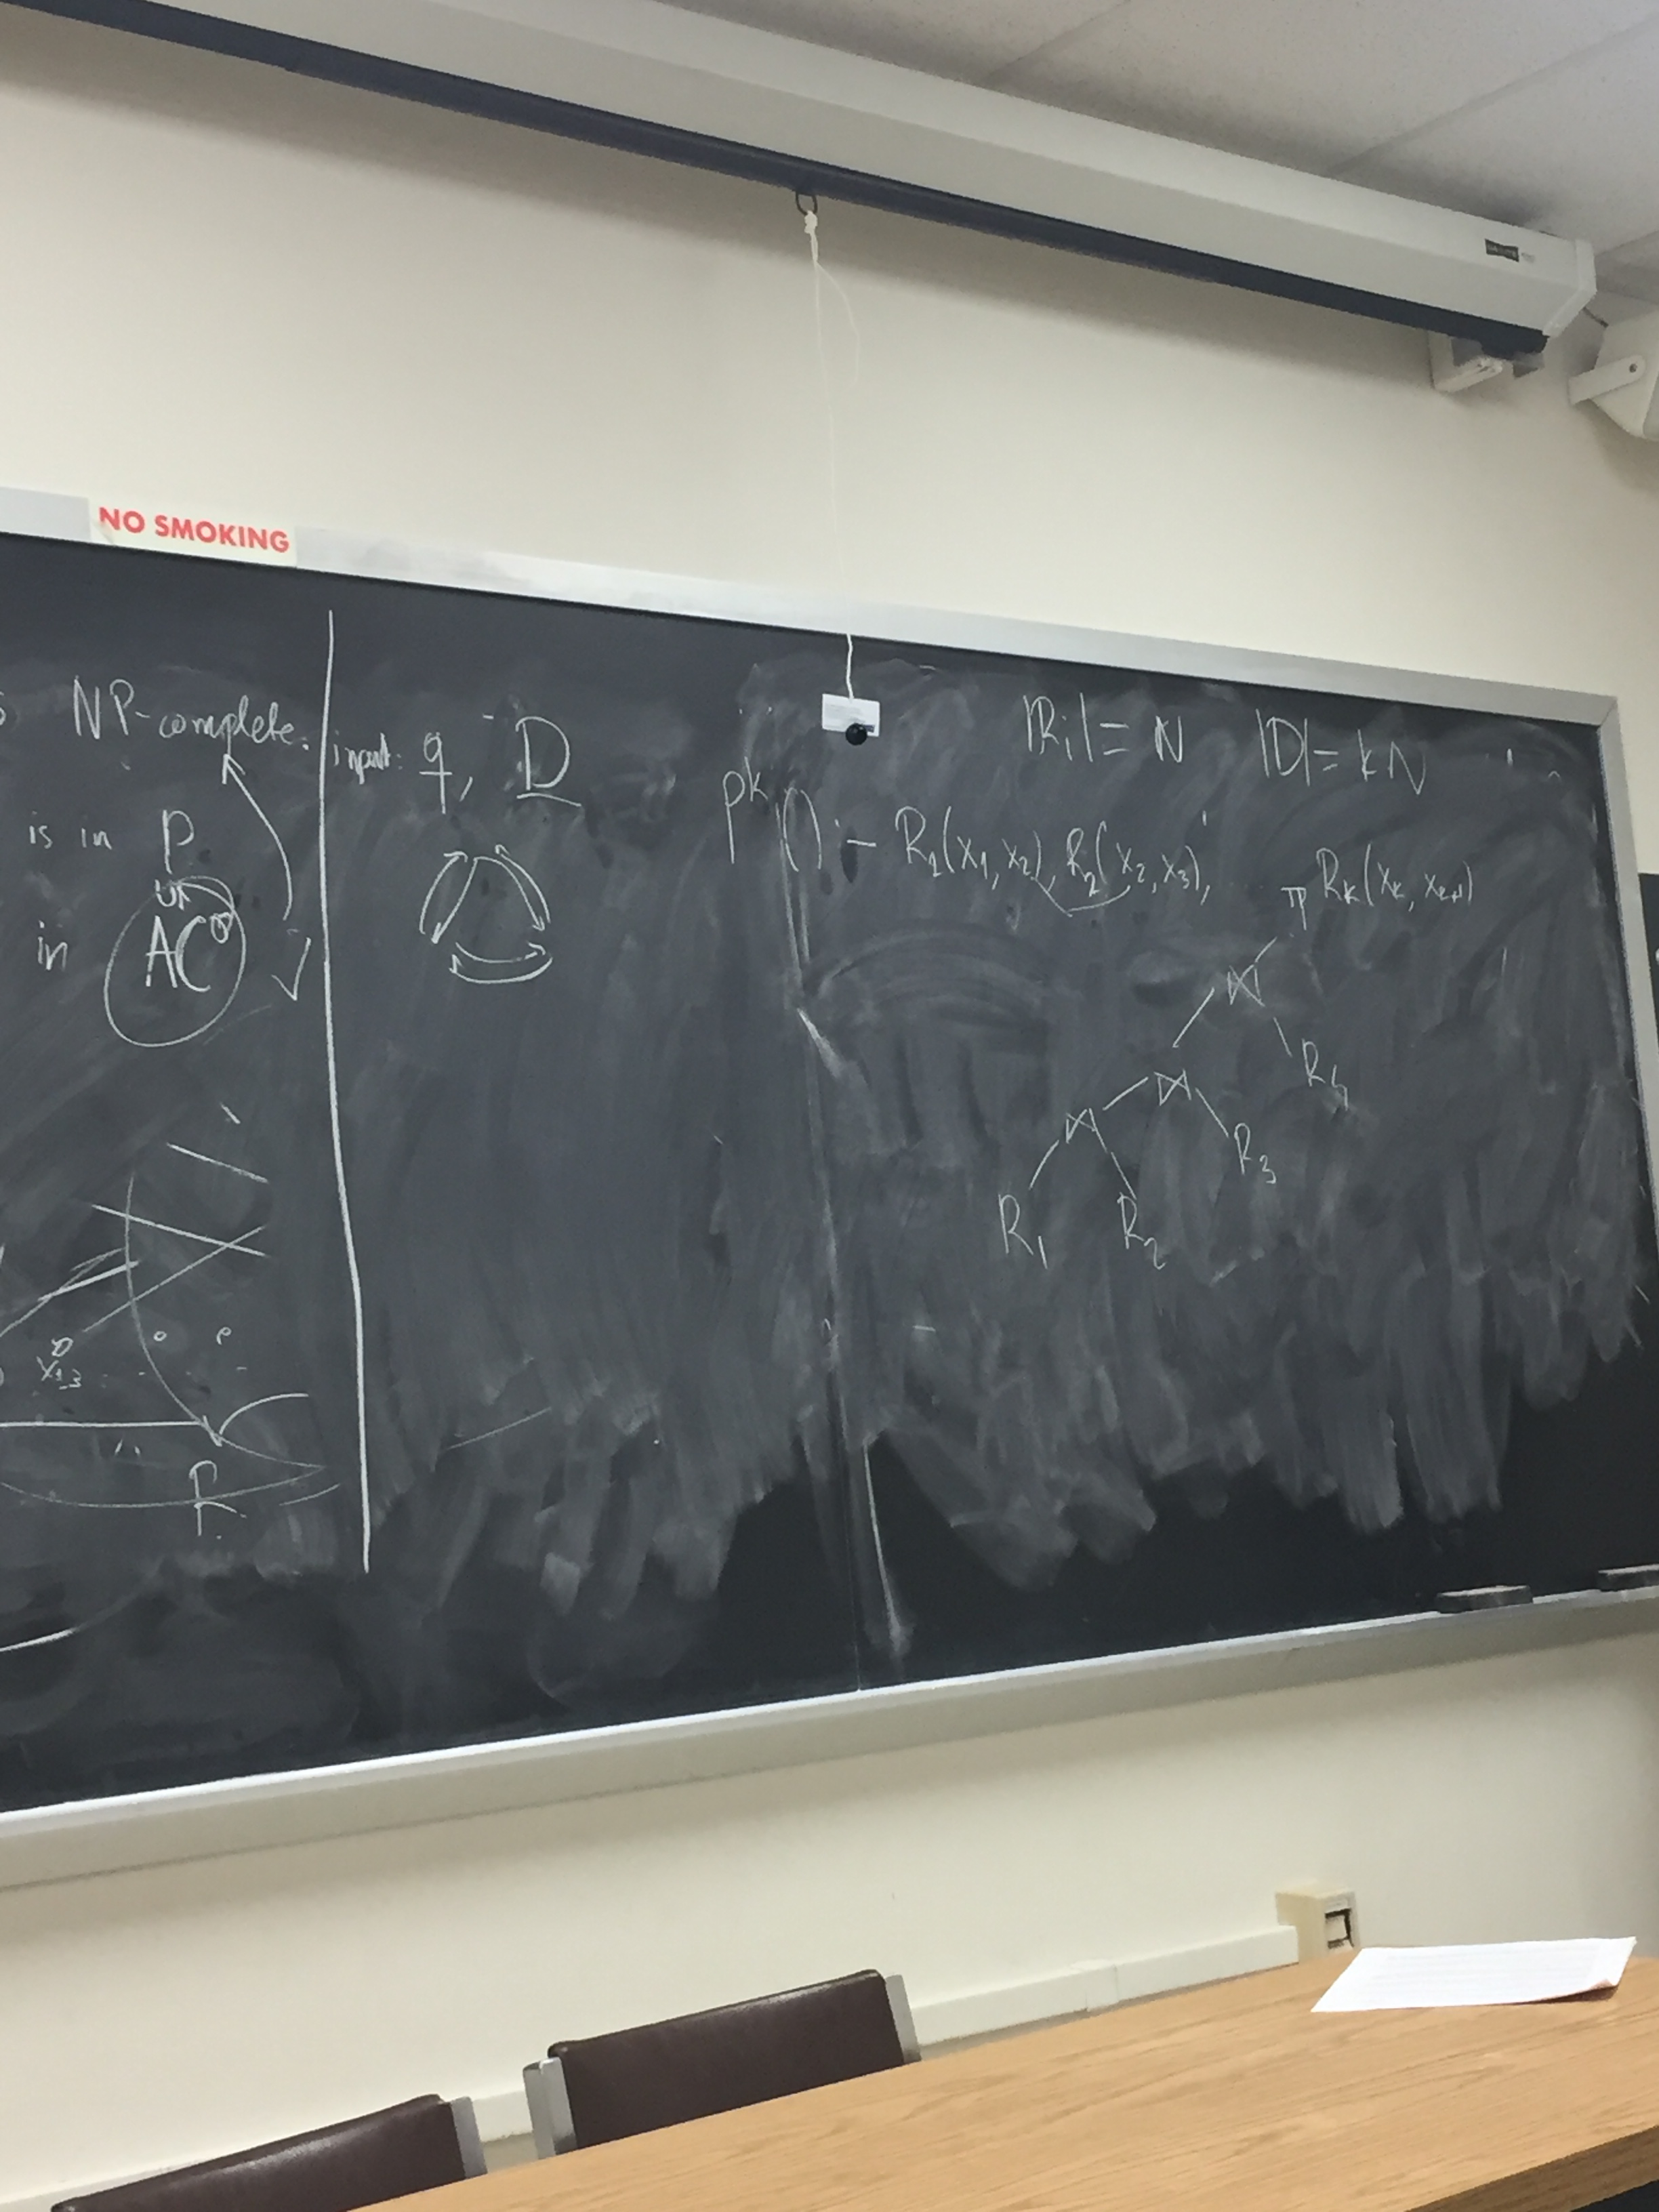 NO SMOKING
NP-complete.
is in P
UI
in AC⁰ ✓
X₁,₃
input: q, D
|Rᵢ| = N |D| = kN
Pᵏ() :- R₁(x₁, x₂), R₂(x₂, x₃), ... Rₖ(xₖ, xₖ₊₁)
π
⋈
⋈ R₄
⋈ R₃
R₁ R₂